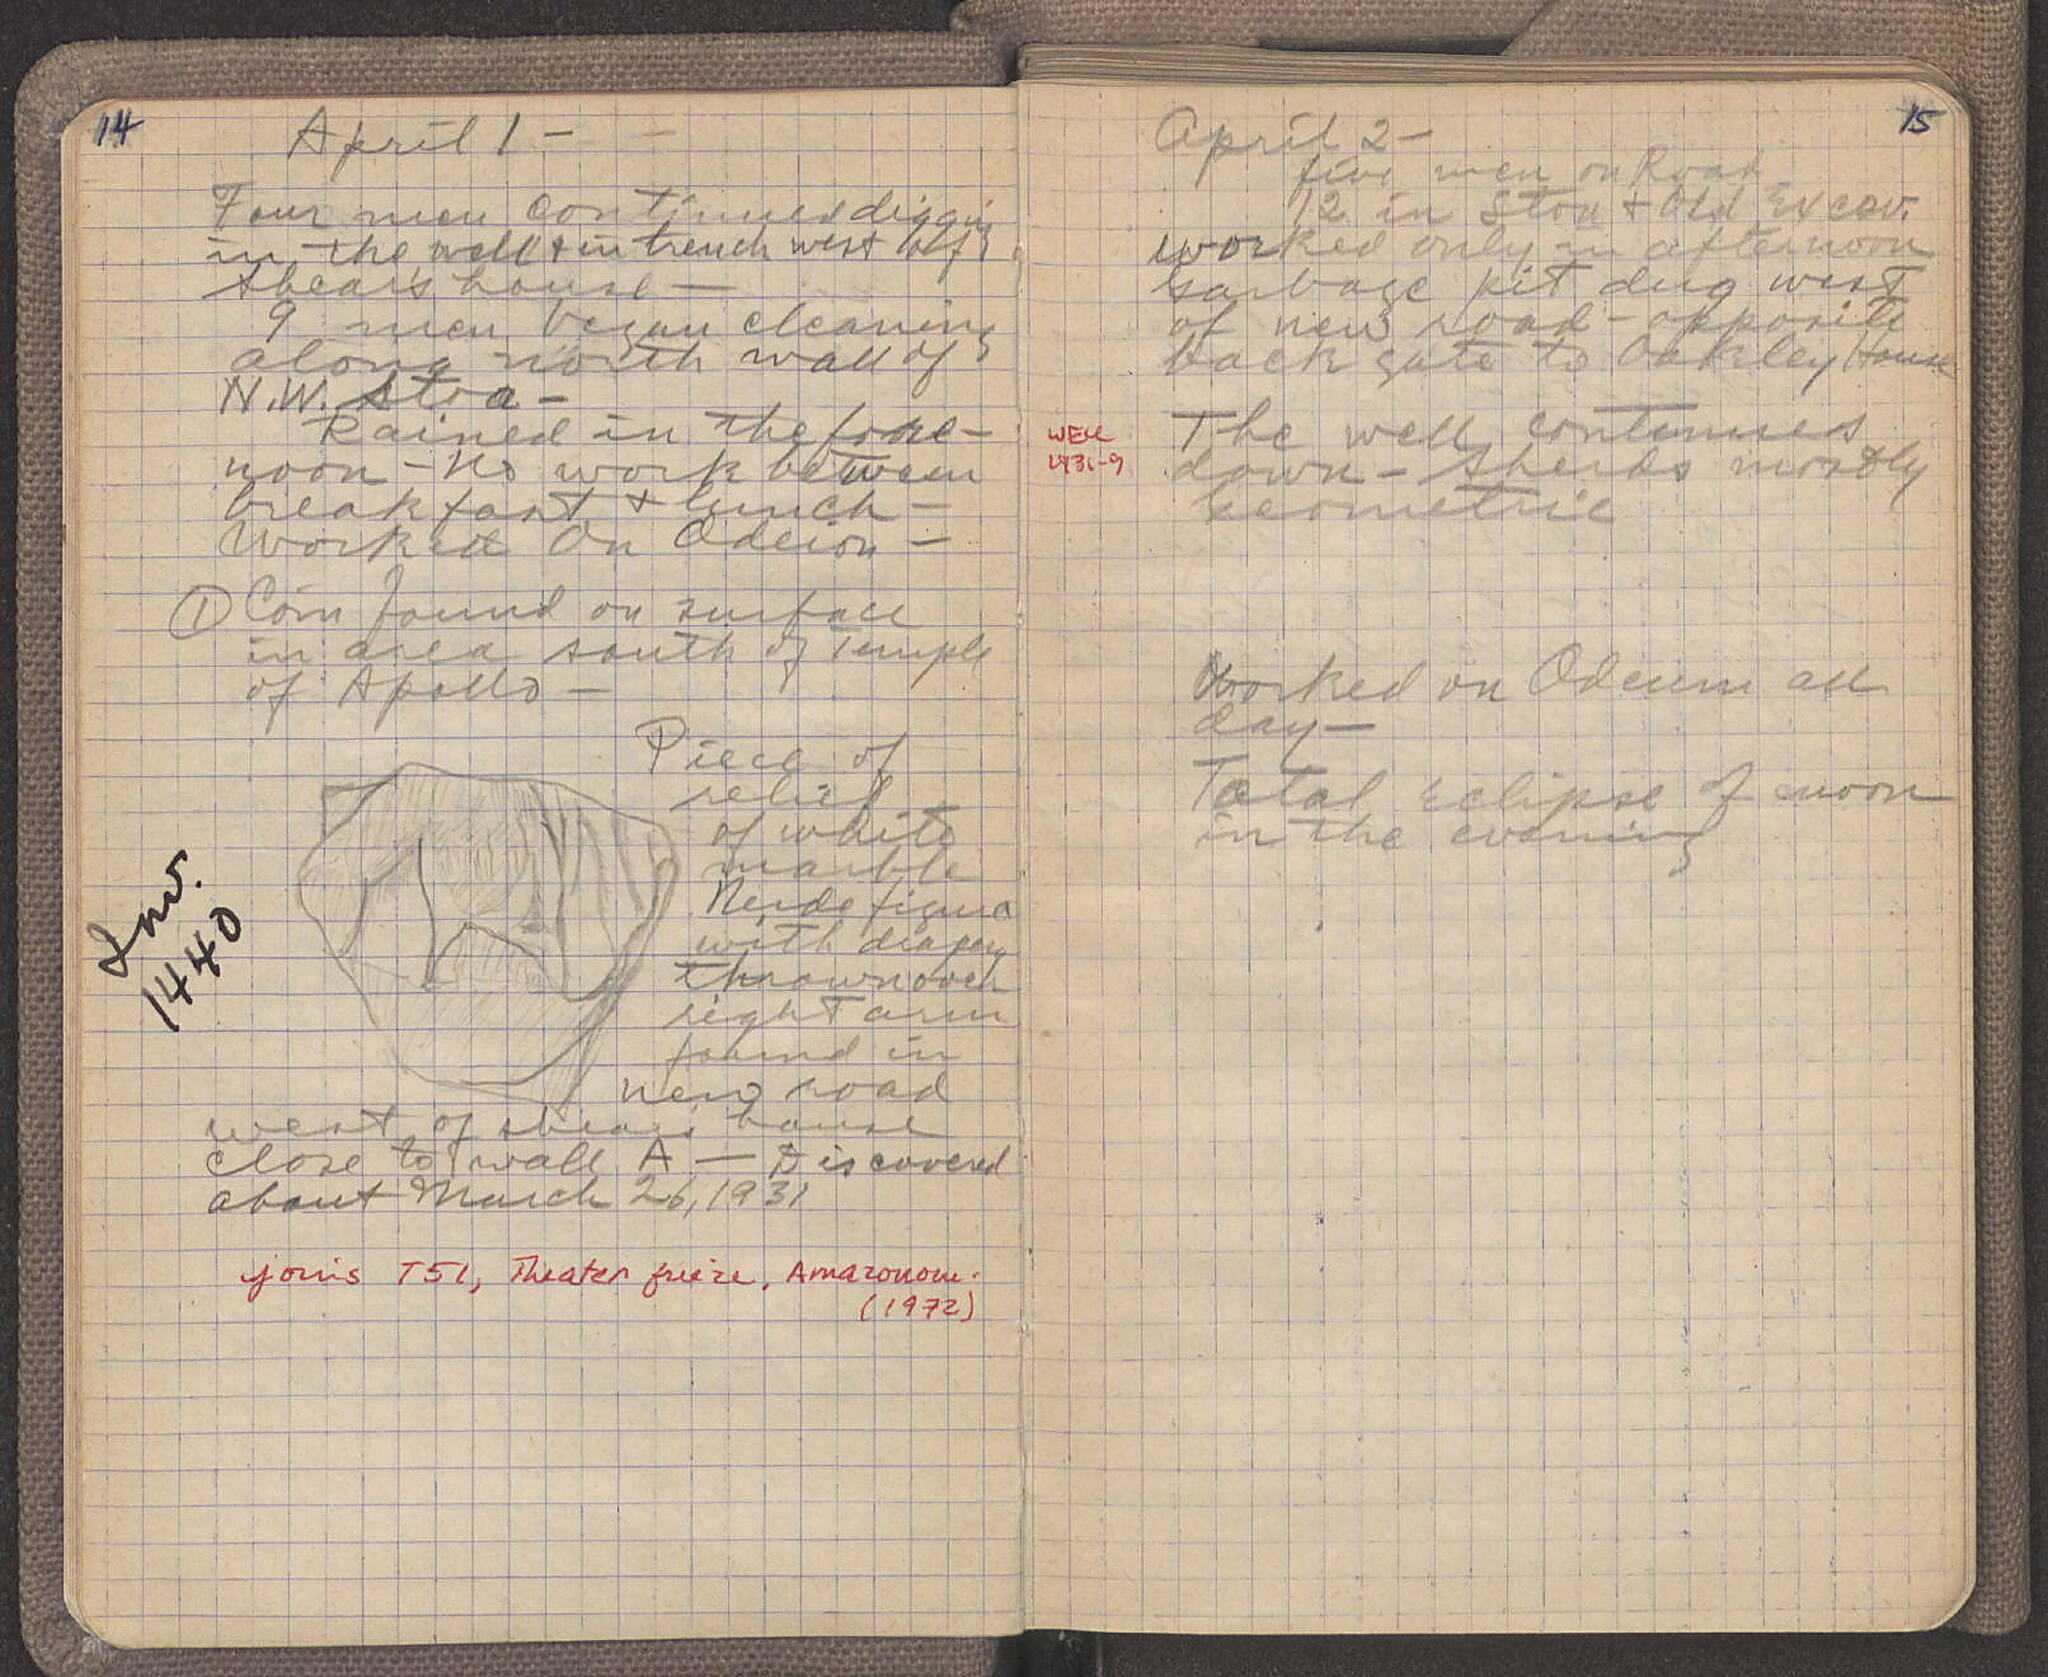 14
April 1 –
Four men continued diggin
in the well + in trench west of
Shear's house –
9 men began cleaning
along north wall of
N.W. Stoa –
Rained in the fore-
noon – No work between
breakfast + lunch –
Worked On Odeion –
① Coin found on surface
in area south of Temple
of Apollo –
Piece of
relief
of white
marble
Nude figure
with drapery
thrown over
right arm
found in
new road
west of Shear's house
close to wall A — Discovered
about March 26, 1931
Inv.
1440
joins T51, Theater frieze, Amazonom.
(1972)
15
April 2 –
five men on Road
12 in Stoa + Old Excav.
worked only in afternoon
Garbage pit dug west
of new road – opposite
back gate to Oakley House
WELL
1931-9
The well continues
down – sherds mostly
Geometric
Worked on Odeum all
day –
Total eclipse of moon
in the evening